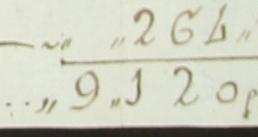 — „ „ 264 „
.. „ 9 „ 120